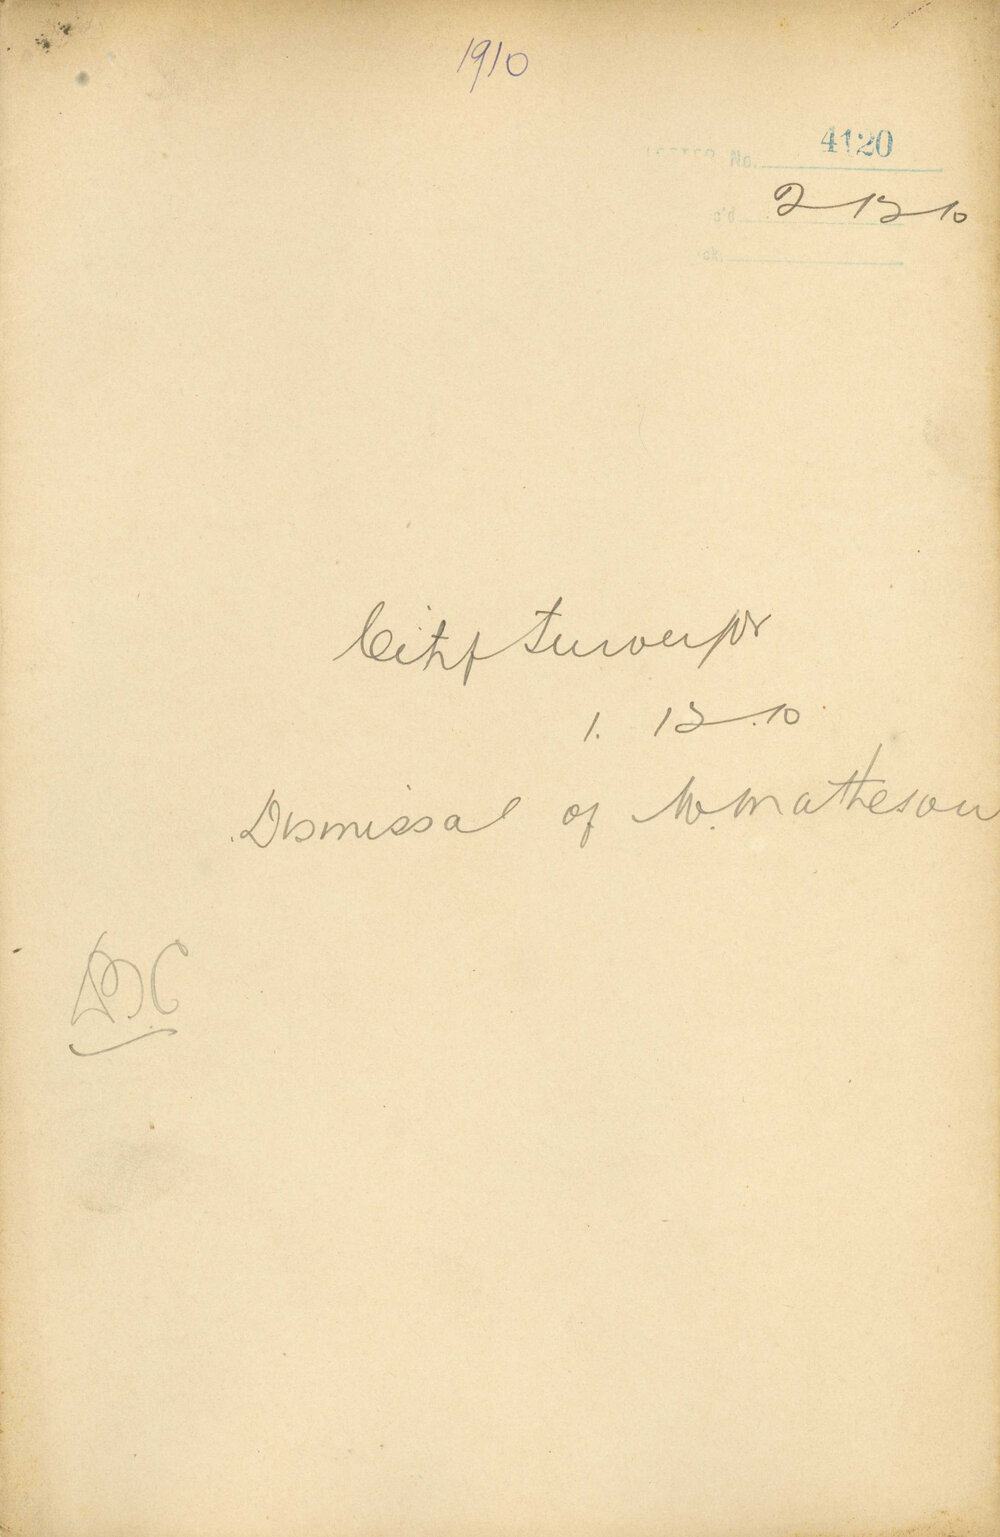 1910
LETTER No. 4120
c'd 2-12-10
ck.
City Surveyor
1. 12.10
Dismissal of W. Matheson